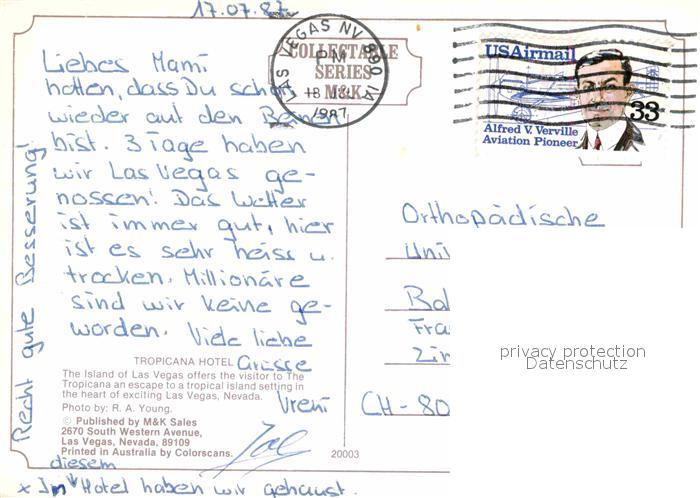 17.07.87
Liebes Mami
hoffen, dass Du schon
wieder auf den Beinen
bist. 3 Tage haben
wir Las Vegas ge-
nossen! Das Wetter
ist immer gut, hier
ist es sehr heiss u.
trocken. Millionäre
sind wir keine ge-
worden. Viele liebe
Grüsse
Vreni
Recht gute Besserung!
TROPICANA HOTEL
The Island of Las Vegas offers the visitor to The
Tropicana an escape to a tropical island setting in
the heart of exciting Las Vegas, Nevada.
Photo by: R. A. Young.
© Published by M&K Sales
2670 South Western Avenue,
Las Vegas, Nevada, 89109
Printed in Australia by Colorscans.
20003
diesem
x Im Hotel haben wir gehaust.
COLLECTABLE
SERIES
M&K
LAS VEGAS NV 890 1A
PM
18 JUL
1987
USAirmail
33
Alfred V. Verville
Aviation Pioneer
Orthopädische
Uni
Bal
CH-80
privacy protection
Datenschutz